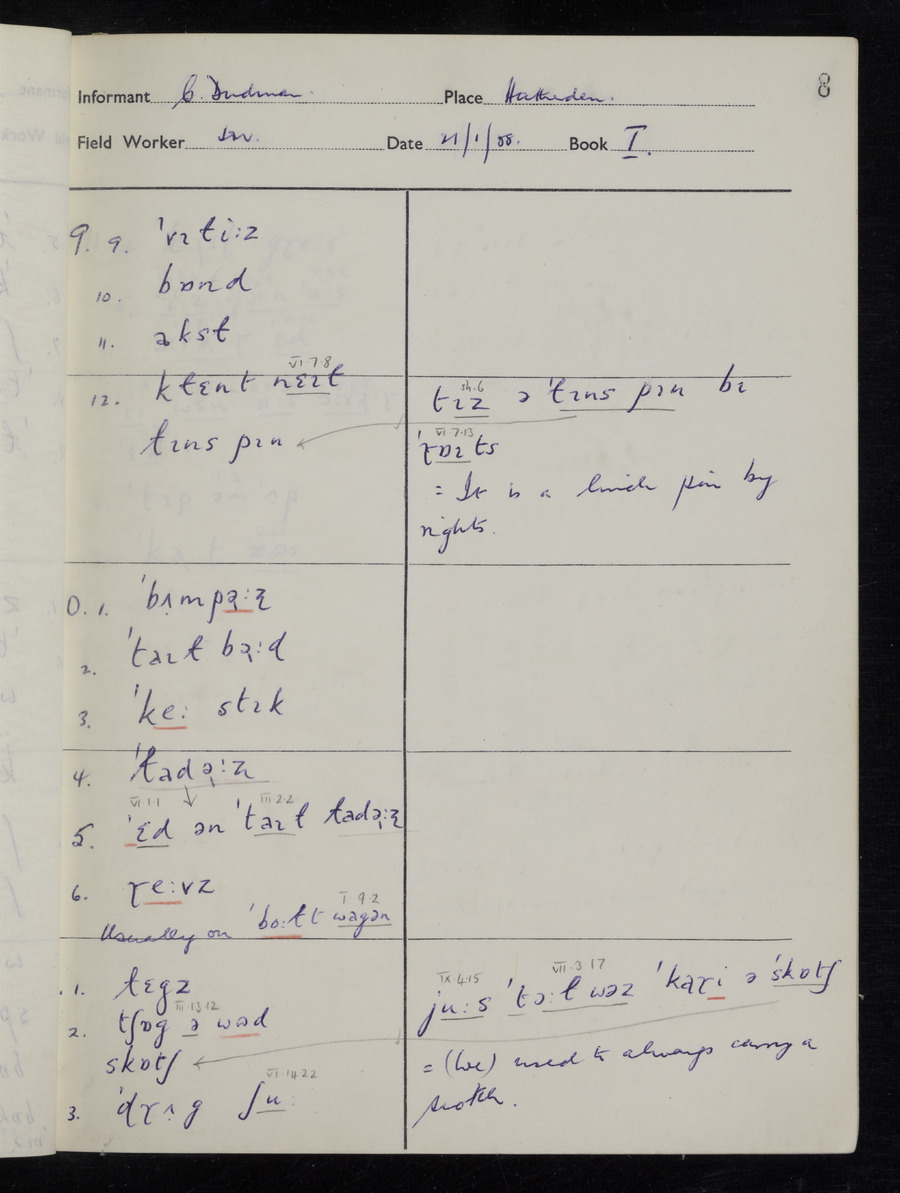 8
Informant C. Dudman. Place Hatherden.
Field Worker Date 21/1/58. Book I.
9. 9. ˈvɪtiːz
10. bɒnd
11. akst
VI·7·8
12. ktɛnt nɛɪt
tɪns pɪn
sh.6
tɪz ə ˈtɪns pɪn bɪ
VI 7·13
ˈɽɒɪts
= It is a linch pin by
rights.
0. 1. ˈbʌmpəːɽ
2. ˈtaɪt bəːd
3. ˈkeː stɪk
4. ˈtadəːɽ
VI·1·1 III 2·2
5. ˈɛd ən ˈtaɪt tadəːɽ
6. ɽeːvz
I 9·2
Usually on ˈboːtt wagən
.1. tɛgz
III·13·12
2. tʃɒg ə wəd
skɒtʃ
VI·14 22
3. ˈdɽʌg ʃuː
IX·4·15 VII·3 17
juːs ˈtɔːt wəz ˈkaɽi ə ˈskɒtʃ
= (We) used to always carry a
scotch.